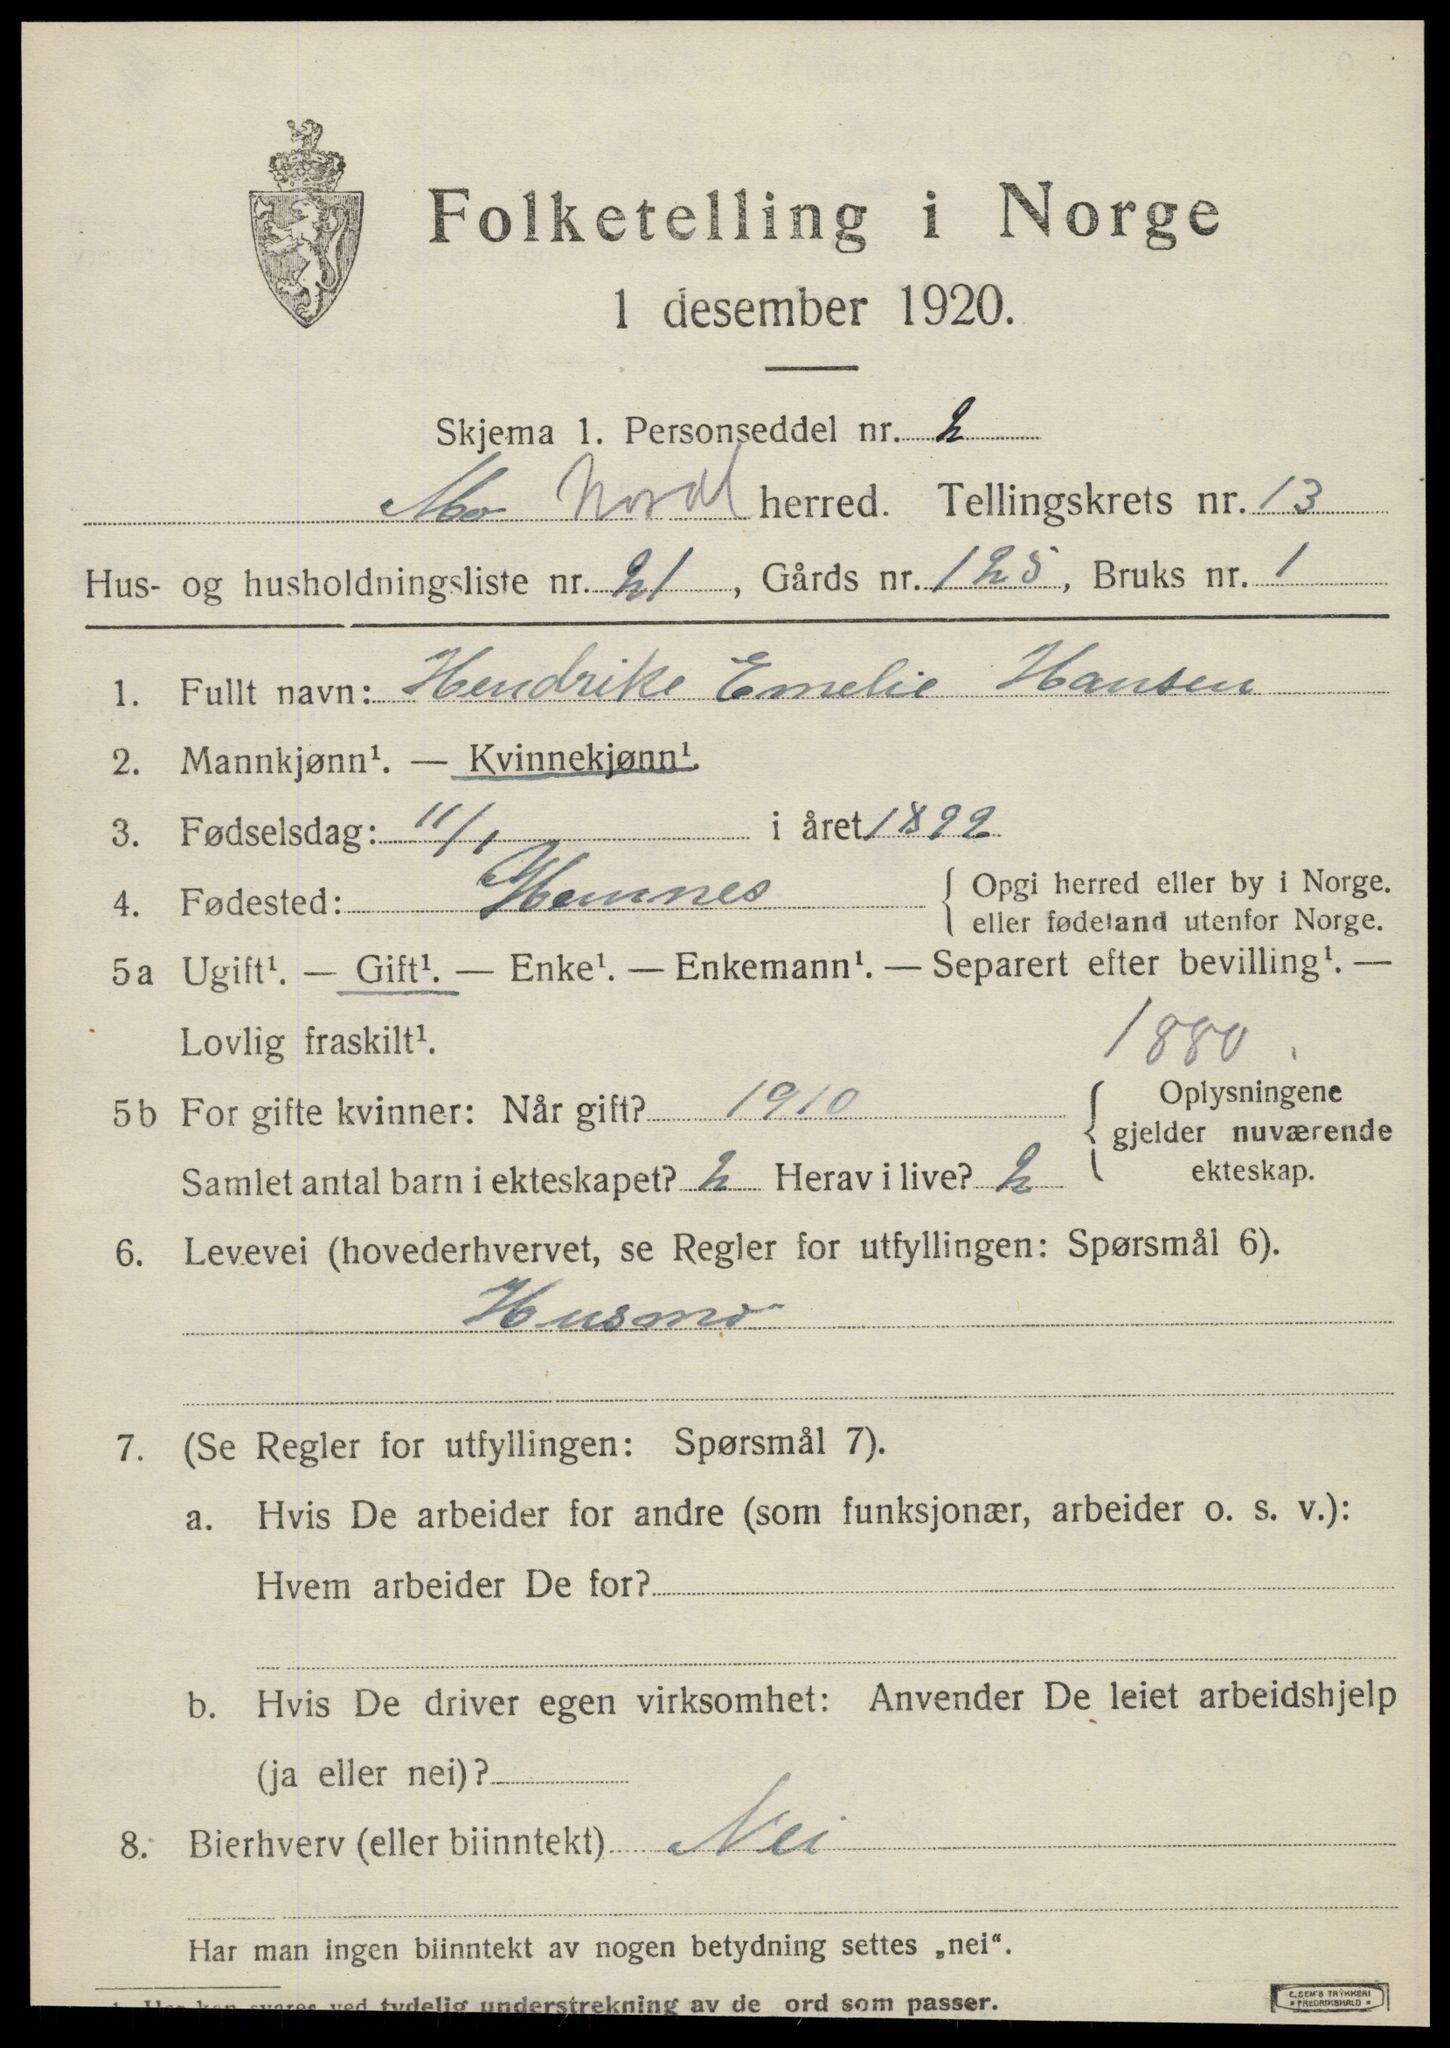 Folketelling i Norge
1 desember 1920.
Skjema 1. Personseddel nr. 2
Mo Nordl herred. Tellingskrets nr. 13
Hus- og husholdningsliste nr. 21, Gårds nr. 125, Bruks nr. 1
1. Fullt navn: Hendrike Emelie Hansen
2. Mannkjønn¹. — Kvinnekjønn¹.
3. Fødselsdag: 11/1 i året 1892
4. Fødested: Hemnes { Opgi herred eller by i Norge.
eller fødeland utenfor Norge.
5a Ugift¹. — Gift¹. — Enke¹. — Enkemann¹. — Separert efter bevilling¹. —
Lovlig fraskilt¹.
1880.
5b For gifte kvinner: Når gift? 1910
Oplysningene
gjelder nuværende
ekteskap.
Samlet antal barn i ekteskapet? 2 Herav i live? 2
6. Levevei (hovederhvervet, se Regler for utfyllingen: Spørsmål 6).
Husmor
7. (Se Regler for utfyllingen: Spørsmål 7).
a. Hvis De arbeider for andre (som funksjonær, arbeider o. s. v.):
Hvem arbeider De for?
b. Hvis De driver egen virksomhet: Anvender De leiet arbeidshjelp
(ja eller nei)?
8. Bierhverv (eller biinntekt) Nei
Har man ingen biinntekt av nogen betydning settes „nei“.
1. Her kan svares ved tydelig understrekning av de ord som passer.
E. SEM'S TRYKKERI
FREDRIKSHALD